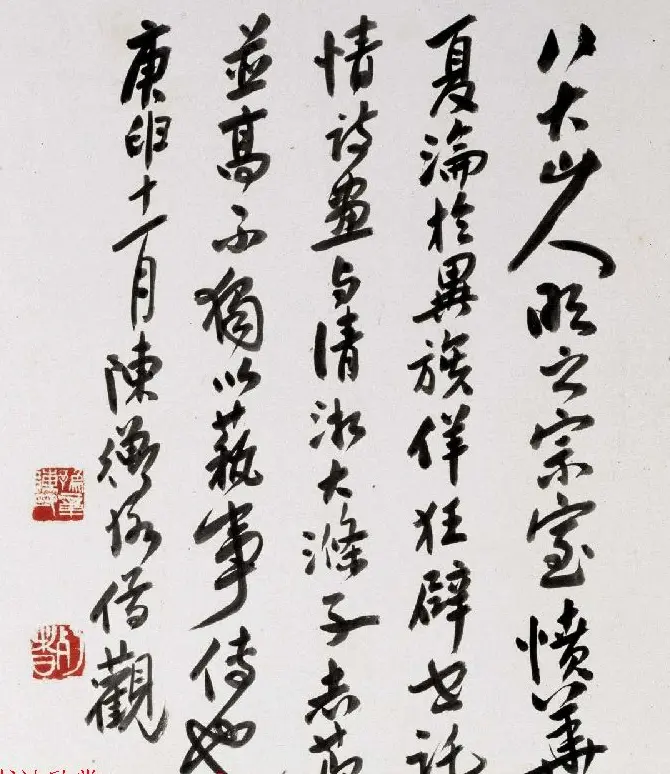 八大山人明之宗室憤華
夏淪於異族佯狂辟世託
情詩畫与清湘大滌子志
並高不獨以藝事傳也
庚申十一月陳衡恪借觀